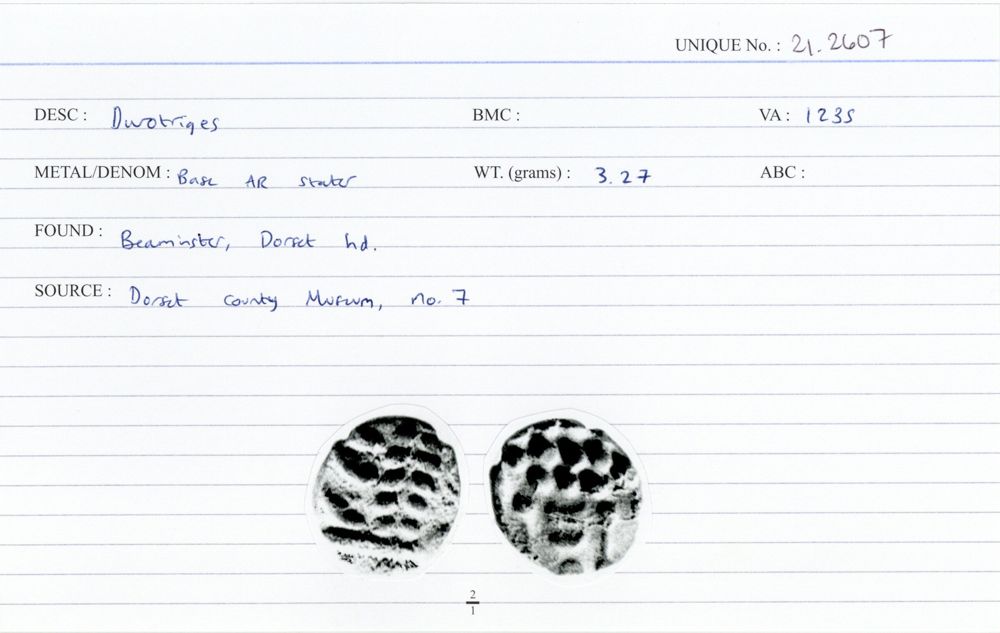 UNIQUE No. : 21.2607
DESC : Durotriges BMC : VA : 1235
METAL/DENOM : Base AR stater WT. (grams) : 3.27 ABC :
FOUND : Beaminster, Dorset hd.
SOURCE : Dorset County Museum, no. 7
2
1